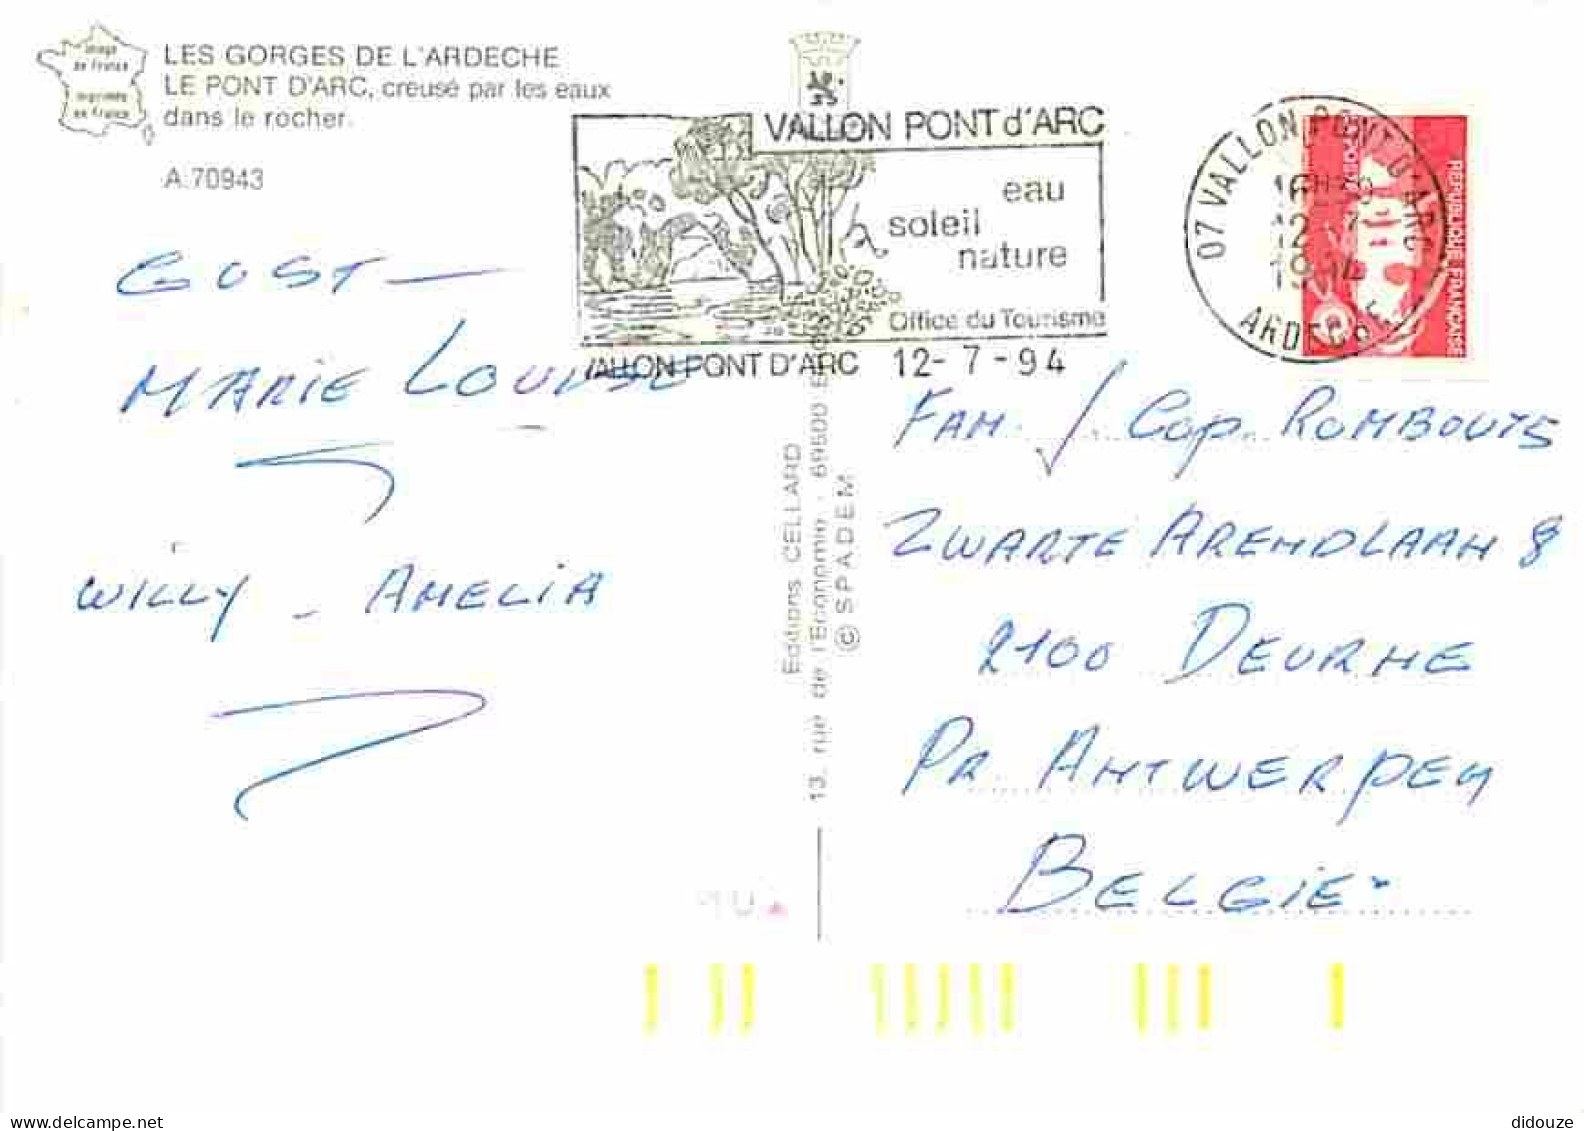 Image
de France
imprimée
en France
LES GORGES DE L'ARDECHE
LE PONT D'ARC, creusé par les eaux
dans le rocher.
A 70943
VALLON PONT d'ARC
eau
soleil
nature
Office du Tourisme
VALLON PONT D'ARC 12-7-94
07 VALLON PONT D'ARC
12-7
1994
ARDECHE
REPUBLIQUE FRANÇAISE
GUST —
MARIE LOUISE
WILLY - AMELIA
Editions CELLARD
13, rue de l'Economie - 69500
© SPADEM
FAM. / Cop. ROMBOUTS
ZWARTE ARENDLAAN 8
2100 DEURNE
PR. ANTWERPEN
BELGIE
didouze